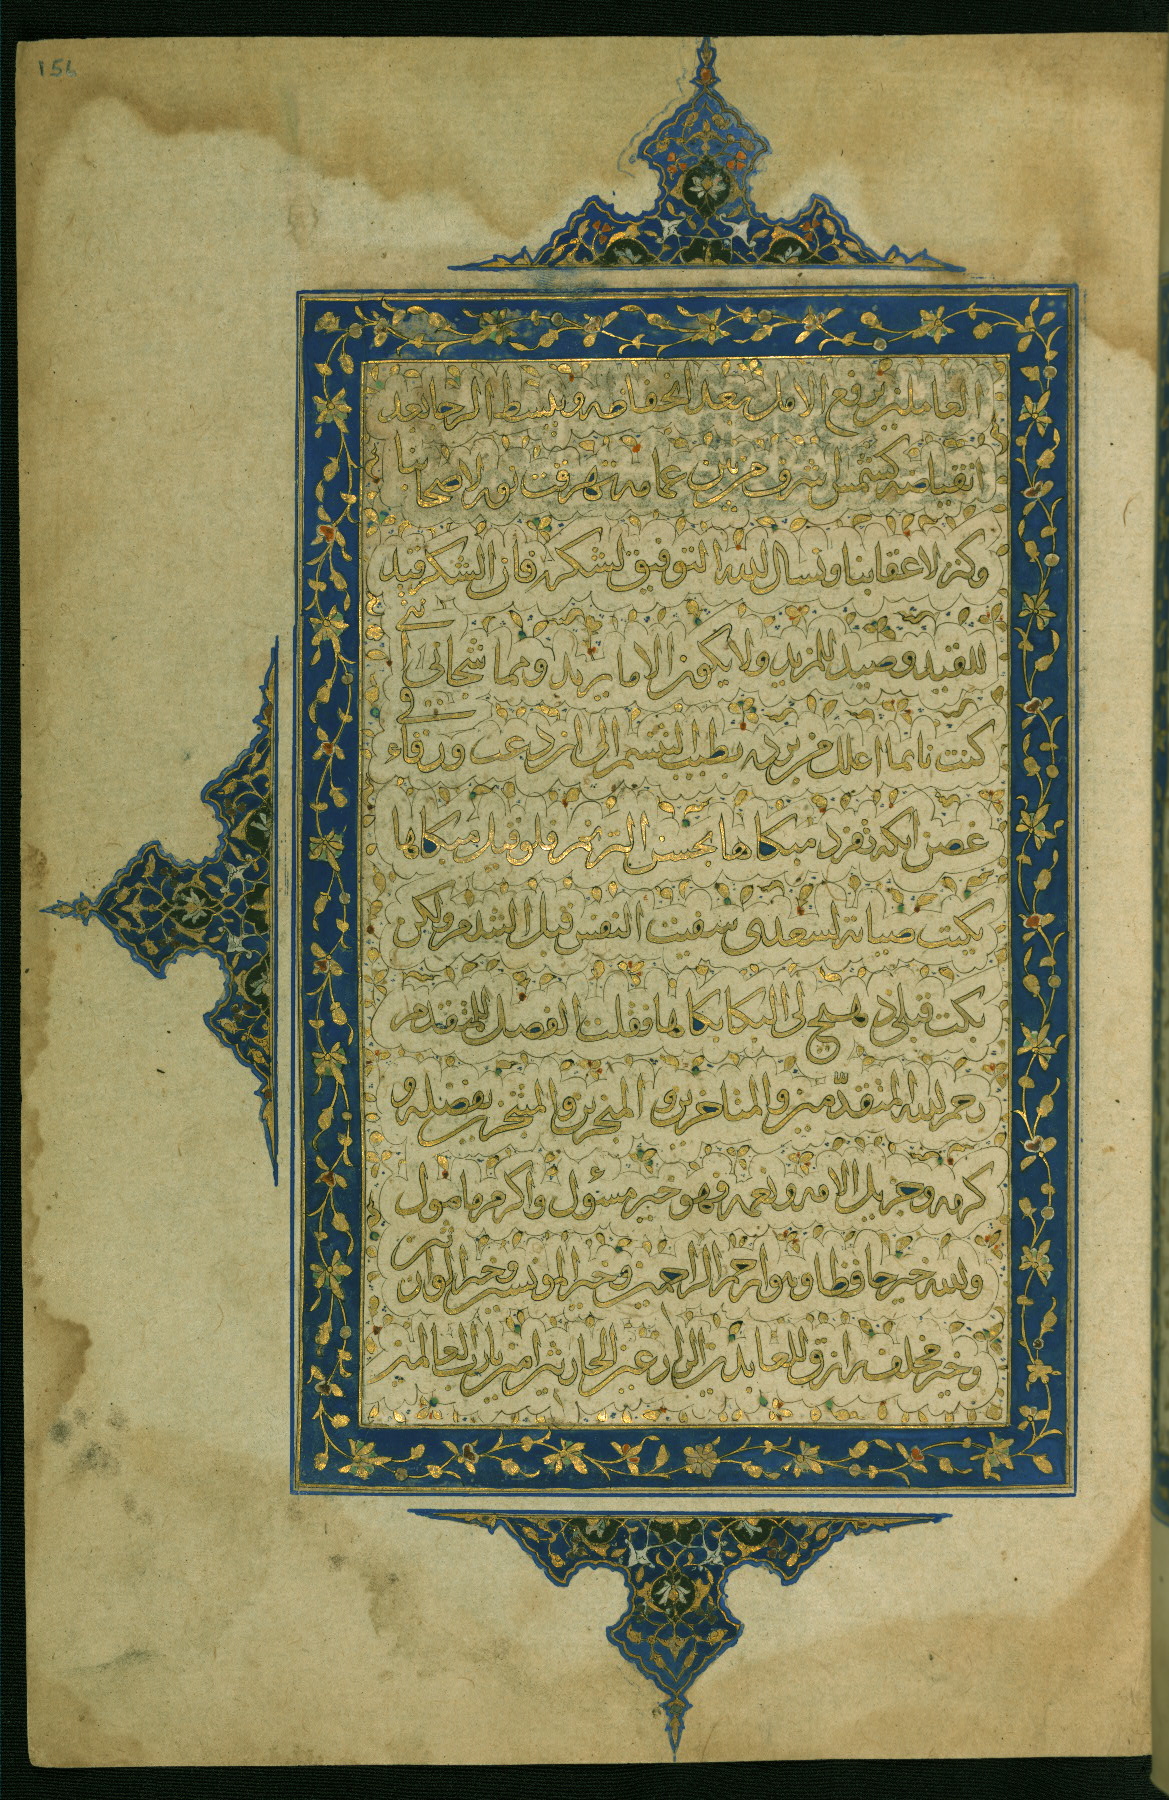 154
العاملين يرفع الامل بعد انخفاضه ويبسط الرجا بعد
انقباضه كشمس شرق من بين غمامة تهرقت نور لاصحابنا
وكنز لاعقابنا ونسال لله التوفيق لشكره فان الشكر قيد
للقيد وصيد للمزيد ولا يكون الا ما يريد ومما شجاني انني
كنت نايما اعلل من برد بطيب التنسم الى ان دعت ورقاء في
غصن ايكة تغرد مبكاها بحسن الترنم فلو قبل مبكاها
بكيت صبابة لسعدى شفيت النفس قبل التندم ولكن
بكت قبلي فهيج لي البكا بكاها فقلت الفضل للمتقدم
رحم لله المتقدمين والمتاخرين و المنجزين والمتنجزين بفضله و
كرمه وجزيل الامه ونعمه فهو خير مسؤل واكرم مامول
ولله خير حافظا وهو ارحم الراحمين وخير المونسين وخير الوارثين
وخير مخلف رازق للعابدين الزارعين الحارثين امين يا رب العالمين